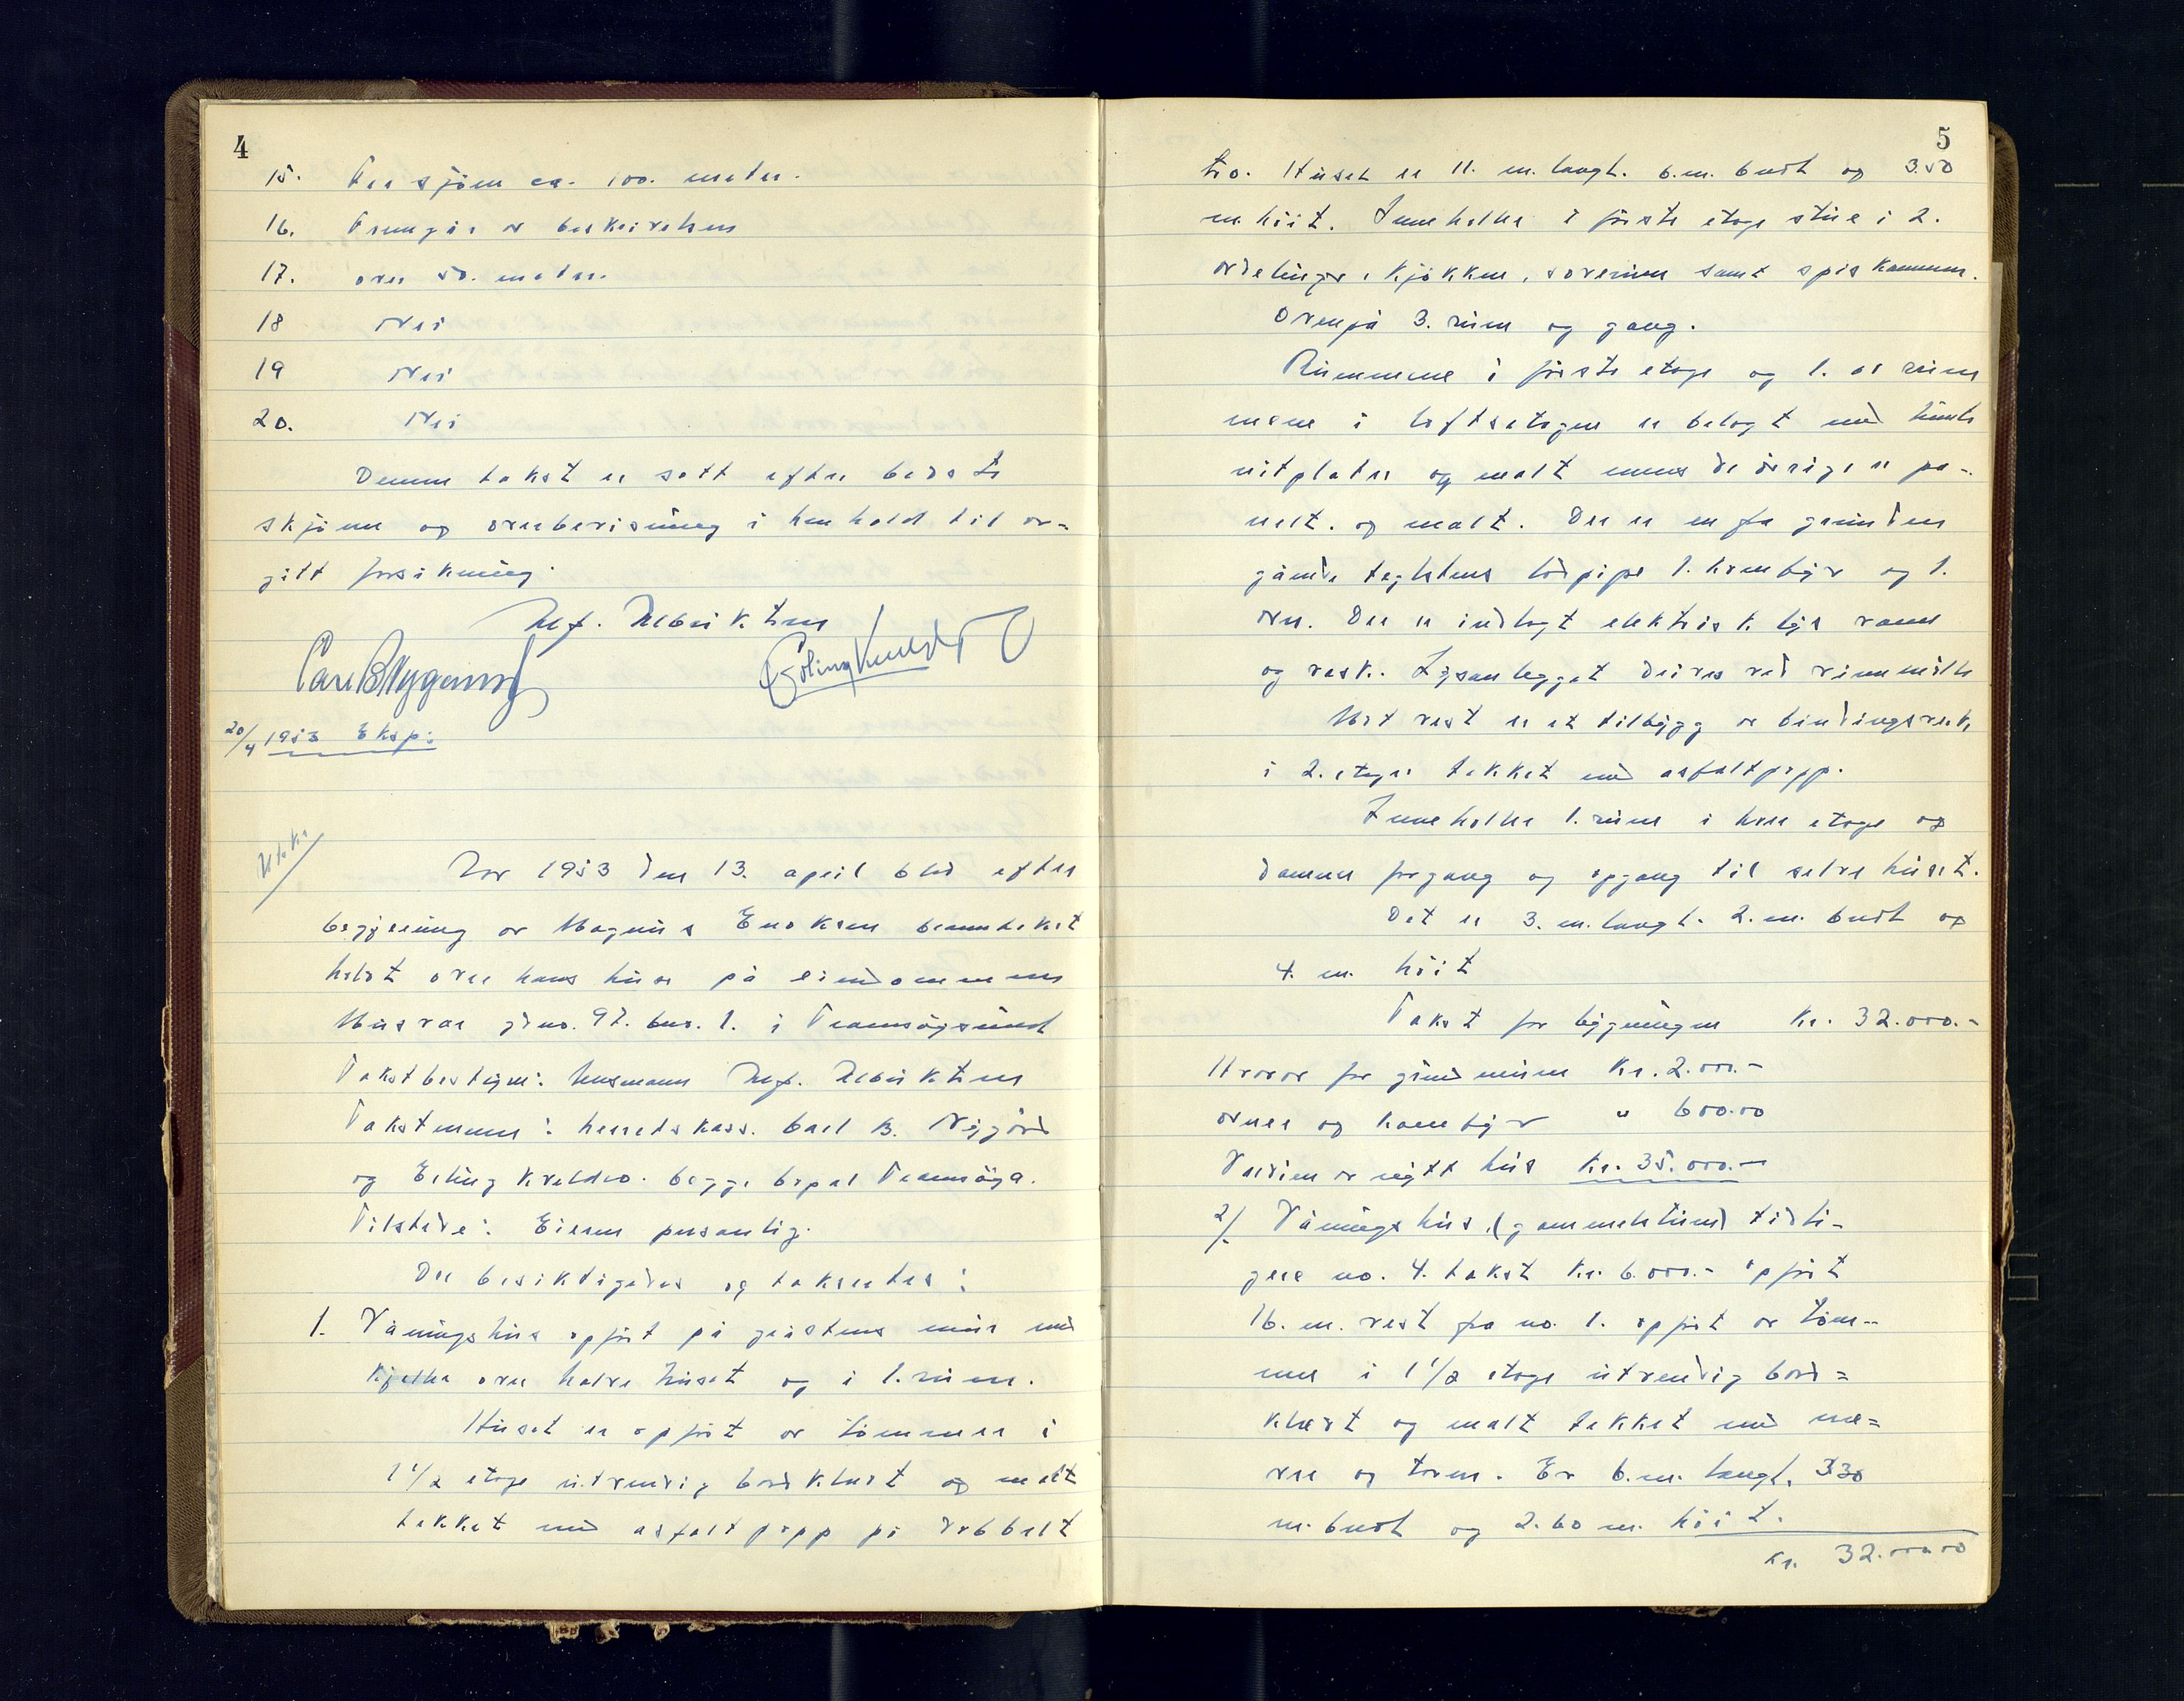 4
15. Fra sjøen ca. 100. meter.
16. Fremgår av beskrivelsen
17. over 50. meter.
18 Nei
19 Nei
20. Nei
Denne takst er satt efter beste
skjønn og overbevisning i henhold til av=
gitt forsikring.
Alf. Albriktsen
Carl B Nygaard
Erling Kveldro
20/4 1953 Eksp:
År 1953 den 13. april blev efter
begjæring av Magnus Enoksen branntakst
holdt over hans hus på eiendommen
Musvær gdno. 97. bno. 1. i Tromsøysund
Takstbestyrer: lensmann Alf. Albriktsen
Takstmenn: herredskass. Carl B. Nygård
og Erling Kveldro. begge bopel Tromsøya.
Tilstede: Eieren personlig.
Der besiktigedes og takseredes:
1. Våningshus opført på gråstens mur med
kjeller over halve huset og i 1. rum.
Huset er opført av tømmer i
1 1/2 etage utvendig bordklædt og malt
tekket med asfaltpapp på dobbelt
5
tro. Huset er 11. m. langt. 6. m. bredt og 3.50
m. høit. Inneholder i første etage stue i 2.
avdelinger, kjøkken, soverum samt spiskammer.
Ovenpå 3. rum og gang.
Rummene i første etage og 1. av rum
mene i loftsetagen er belagt med hunto
nitplater og malt mens de øvrige er pa-
nelt. og malt. Der er en fra grunden
gående teglstens luftpipe 1. komfyr og 1.
ovn. Der er indlagt elektrisk lys vann
og vask. Lysanlegget drives ved vinnmølle
Mot vest er et tilbygg av bindingsverk
i 2. etager tekket med asfaltpapp.
Inneholder 1. rum i hver etage og
danner forgang og opgang til selve huset.
Det er 3. m. langt. 2. m. bredt og
4. m. høit
Takst for bygningen Kr. 32.000.-
Hvorav for grunnmuren Kr. 2.000.-
ovner og komfyr " 600.00
Verdien av nytt hus Kr. 35.000.-
2/. Våningshus. (gammelstuen) tidli-
gere no. 4. takst Kr. 6.000.- opført
16. m. vest fra no. 1. opført av tøm-
mer i 1 1/2 etage utvendig bord=
klædt og malt tekket med næ=
ver og torv. Er 6. m. langt. 3.30
m. bredt og 2.60 m. høit.
Kr. 32.000.00